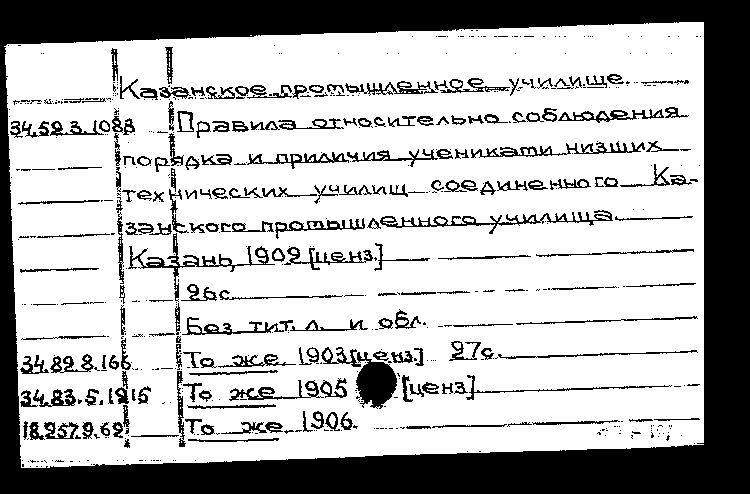 Казанское промышленное училище.
34.59.3.1088 Правила относительно соблюдения
порядка и приличия учениками низших
технических училищ соединенного Ка-
занского промышленного училища.
Казань, 1902 [ценз.]
26с.
Без тит. л. и обл.
34.89.8.166 То же. 1903 [ценз.] 27с.
34.83.5.1215 То же 1905 [ценз].
18.257.9.69 То же. 1906.